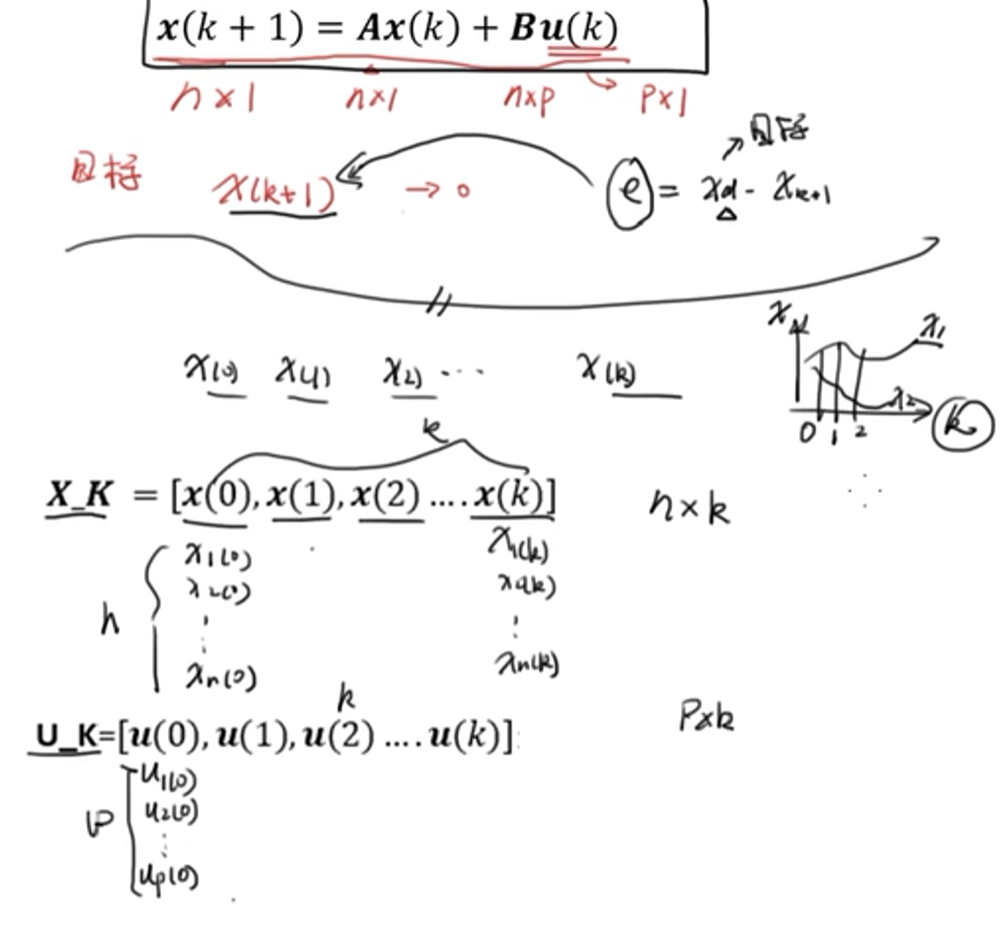 x(k + 1) = Ax(k) + Bu(k)
n×1 n×1 n×p p×1
目标
目标 x(k+1) → 0 e = xd - xk+1
x(0) x(1) x(2) ... x(k)
x x1 x2 0 1 2 k
k
X_K = [x(0), x(1), x(2) .... x(k)] n×k
x1(0) x1(k)
x2(0) x2(k)
n
xn(0) xn(k)
k
U_K=[u(0), u(1), u(2) .... u(k)] p×k
u1(0)
p u2(0)
up(0)